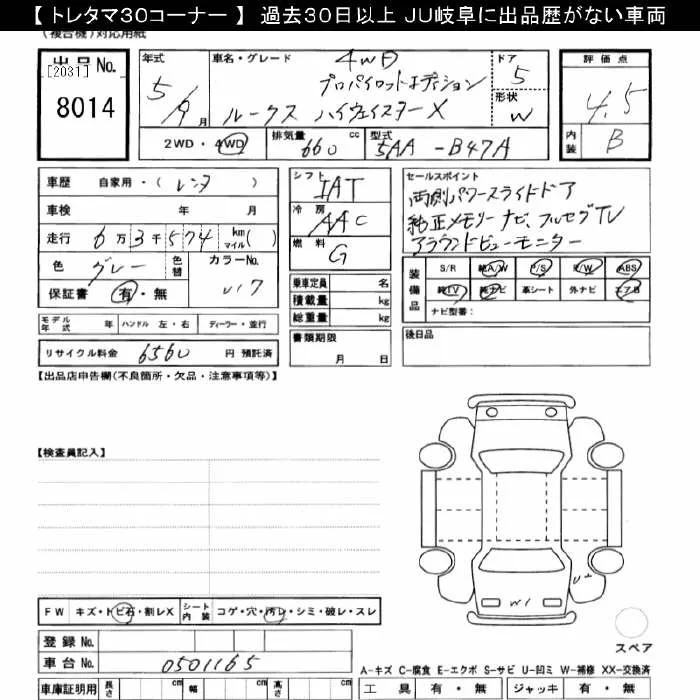 【 トレタマ30コーナー 】 過去30日以上 JU岐阜に出品歴がない車両
(複合機)対応用紙
出品No.
[2031]
8014
年式
5/9月
車名・グレード
4WD
プロパイロットエディション
ルークス ハイウェイスターX
ドア
5
形状
W
評価点
4.5
内装
B
2WD・4WD
排気量
660 cc
型式
5AA-B47A
車歴 自家用・(レンタ)
車検 年 月
走行 6万3千574 km マイル( )
色 グレー 色替
カラーNo.
保証書 有・無
モデル年式 年 ハンドル 左・右 ディーラー・並行
リサイクル料金 6560 円 預託済
シフト IAT
冷房 AAC
燃料 G
乗車定員 名
積載量 kg
総重量 kg
書類期限
月 日
セールスポイント
両側パワースライドドア
純正メモリーナビ、フルセグTV
アラウンドビューモニター
装備品
S/R 純A/W P/S P/W ABS
純TV 純ナビ 革シート 外ナビ エアB
ナビ型番:
後日品
【出品店申告欄(不良箇所・欠品・注意事項等)】
【検査員記入】
U1
W1
FW キズ・トビ石・割レX シート内装 コゲ・穴・汚レ・シミ・破レ・スレ
スペア
登録No.
車台No. 0501165
A-キズ C-腐食 E-エクボ S-サビ U-凹ミ W-補修 XX-交換済
車庫証明用 長さ cm 幅 cm 高さ cm
工具 有・無 ジャッキ 有・無